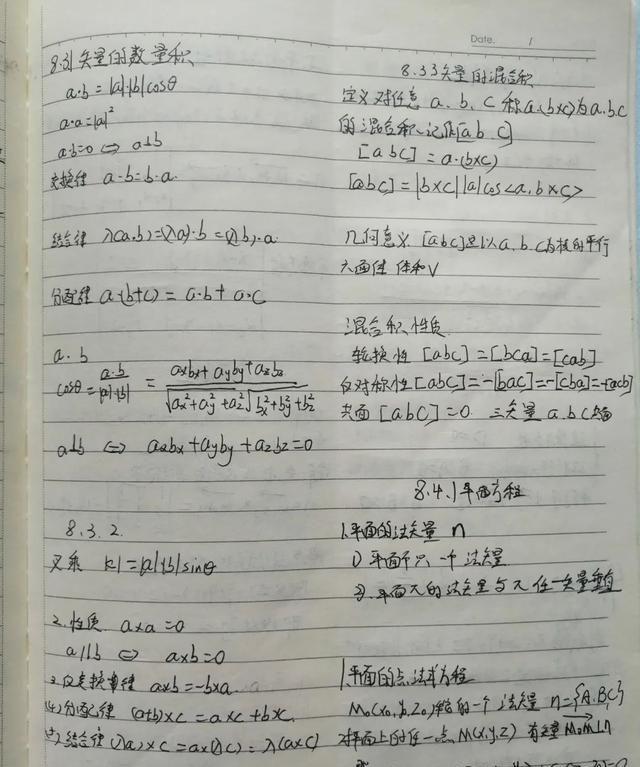 8.31 矢量的数量积
a·b = |a|·|b|cosθ
a·a=|a|²
a·b=0 ⇔ a⊥b
交换律 a·b=b·a.
结合律 λ(a·b)=(λa)·b=(λb)·a.
分配律 a·(b+c) = a·b + a·c
a·b
cosθ = a·b / |a|·|b| = axbx + ayby + azbz / √ax²+ay²+az² √bx²+by²+bz²
a⊥b ⇔ axbx + ayby + azbz = 0
8.3.2.
叉乘 |c| = |a|·|b| sinθ
2.性质 a×a=0
a∥b ⇔ a×b=0
3.反交换律 a×b=-b×a.
(4)分配律 (a+b)×c = a×c + b×c.
结合律 (λa)×c = a×(λc) = λ(a×c)
Date. 1
8.33 矢量的混合积
定义 对任意 a、b、c 称 a·(b×c)为 a.b.c
的混合积、记作[a b c]
[a b c] = a·(b×c)
[abc] = |b×c| |a| cos<a, b×c>
几何意义 [abc]是以 a、b、c为棱的平行
六面体 体积V
混合积性质
轮换性 [abc]=[bca]=[cab]
反对称性[abc]=-[bac]=-[cba]=-[acb]
共面 [abc]=0. 三矢量 a.b.c 共面
8.4.1平面方程
1.平面的法矢量 n
① 平面不只一个法矢量
②.平面π的法矢量与π任一矢量垂直
1平面的点法式方程
M₀(x₀,y₀,z₀) 一个法矢量 n={A.B.C}
对平面上的任一点M(x,y,z) 有 M₀M⊥n